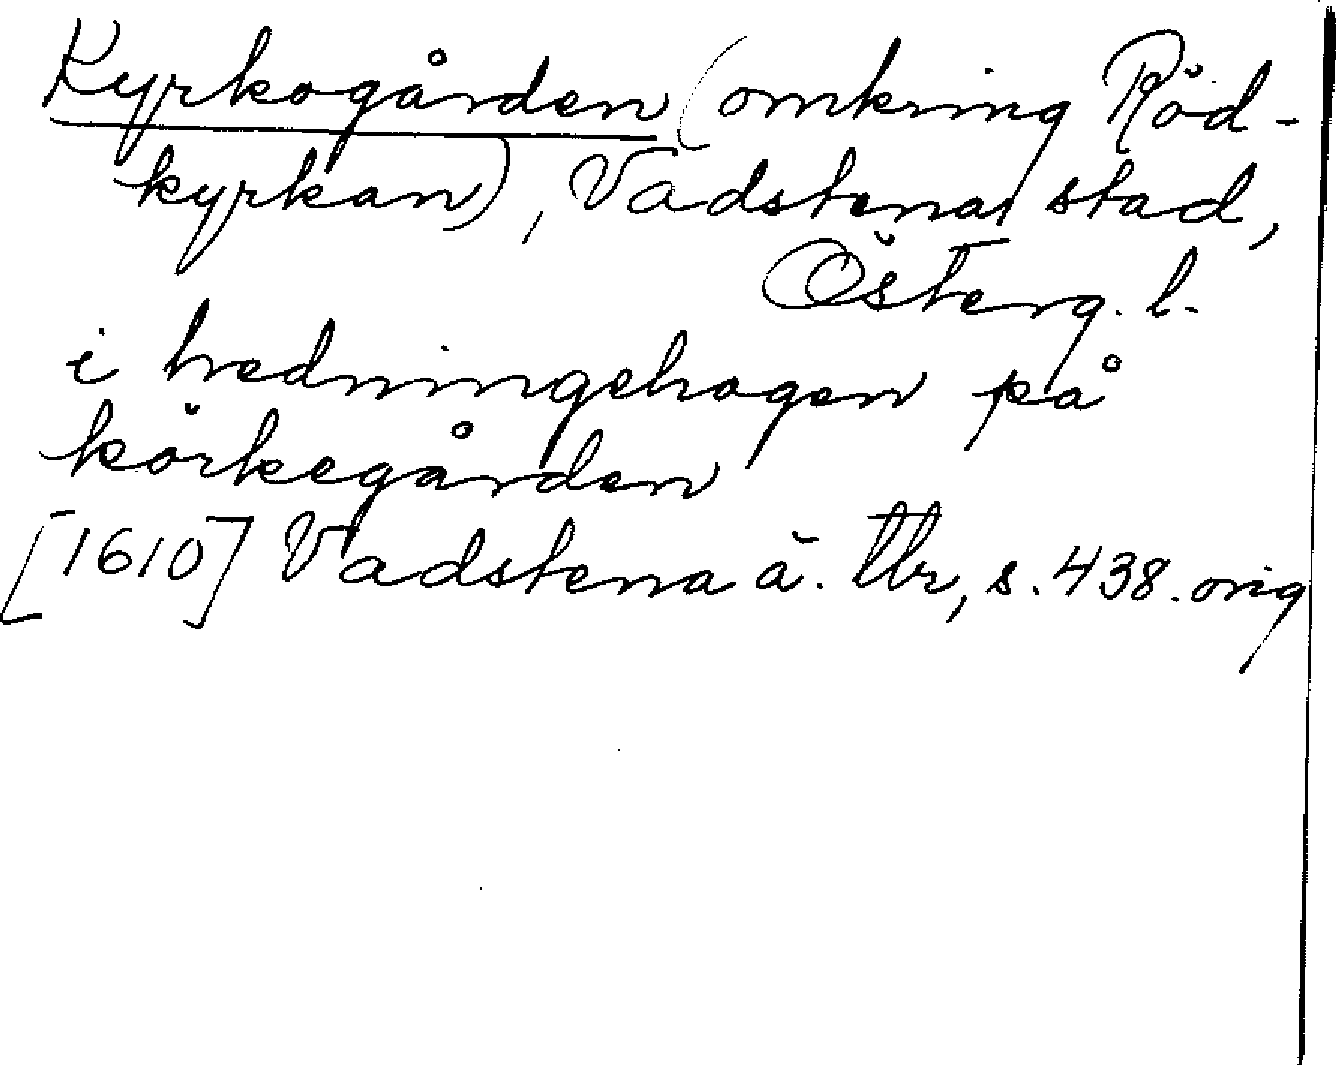 Kyrkogården (omkring Röd-
kyrkan), Vadstena stad,
Österg. l.
i hedningehagen på
körkegården
[1610] Vadstena ä. tbr, s. 438. orig